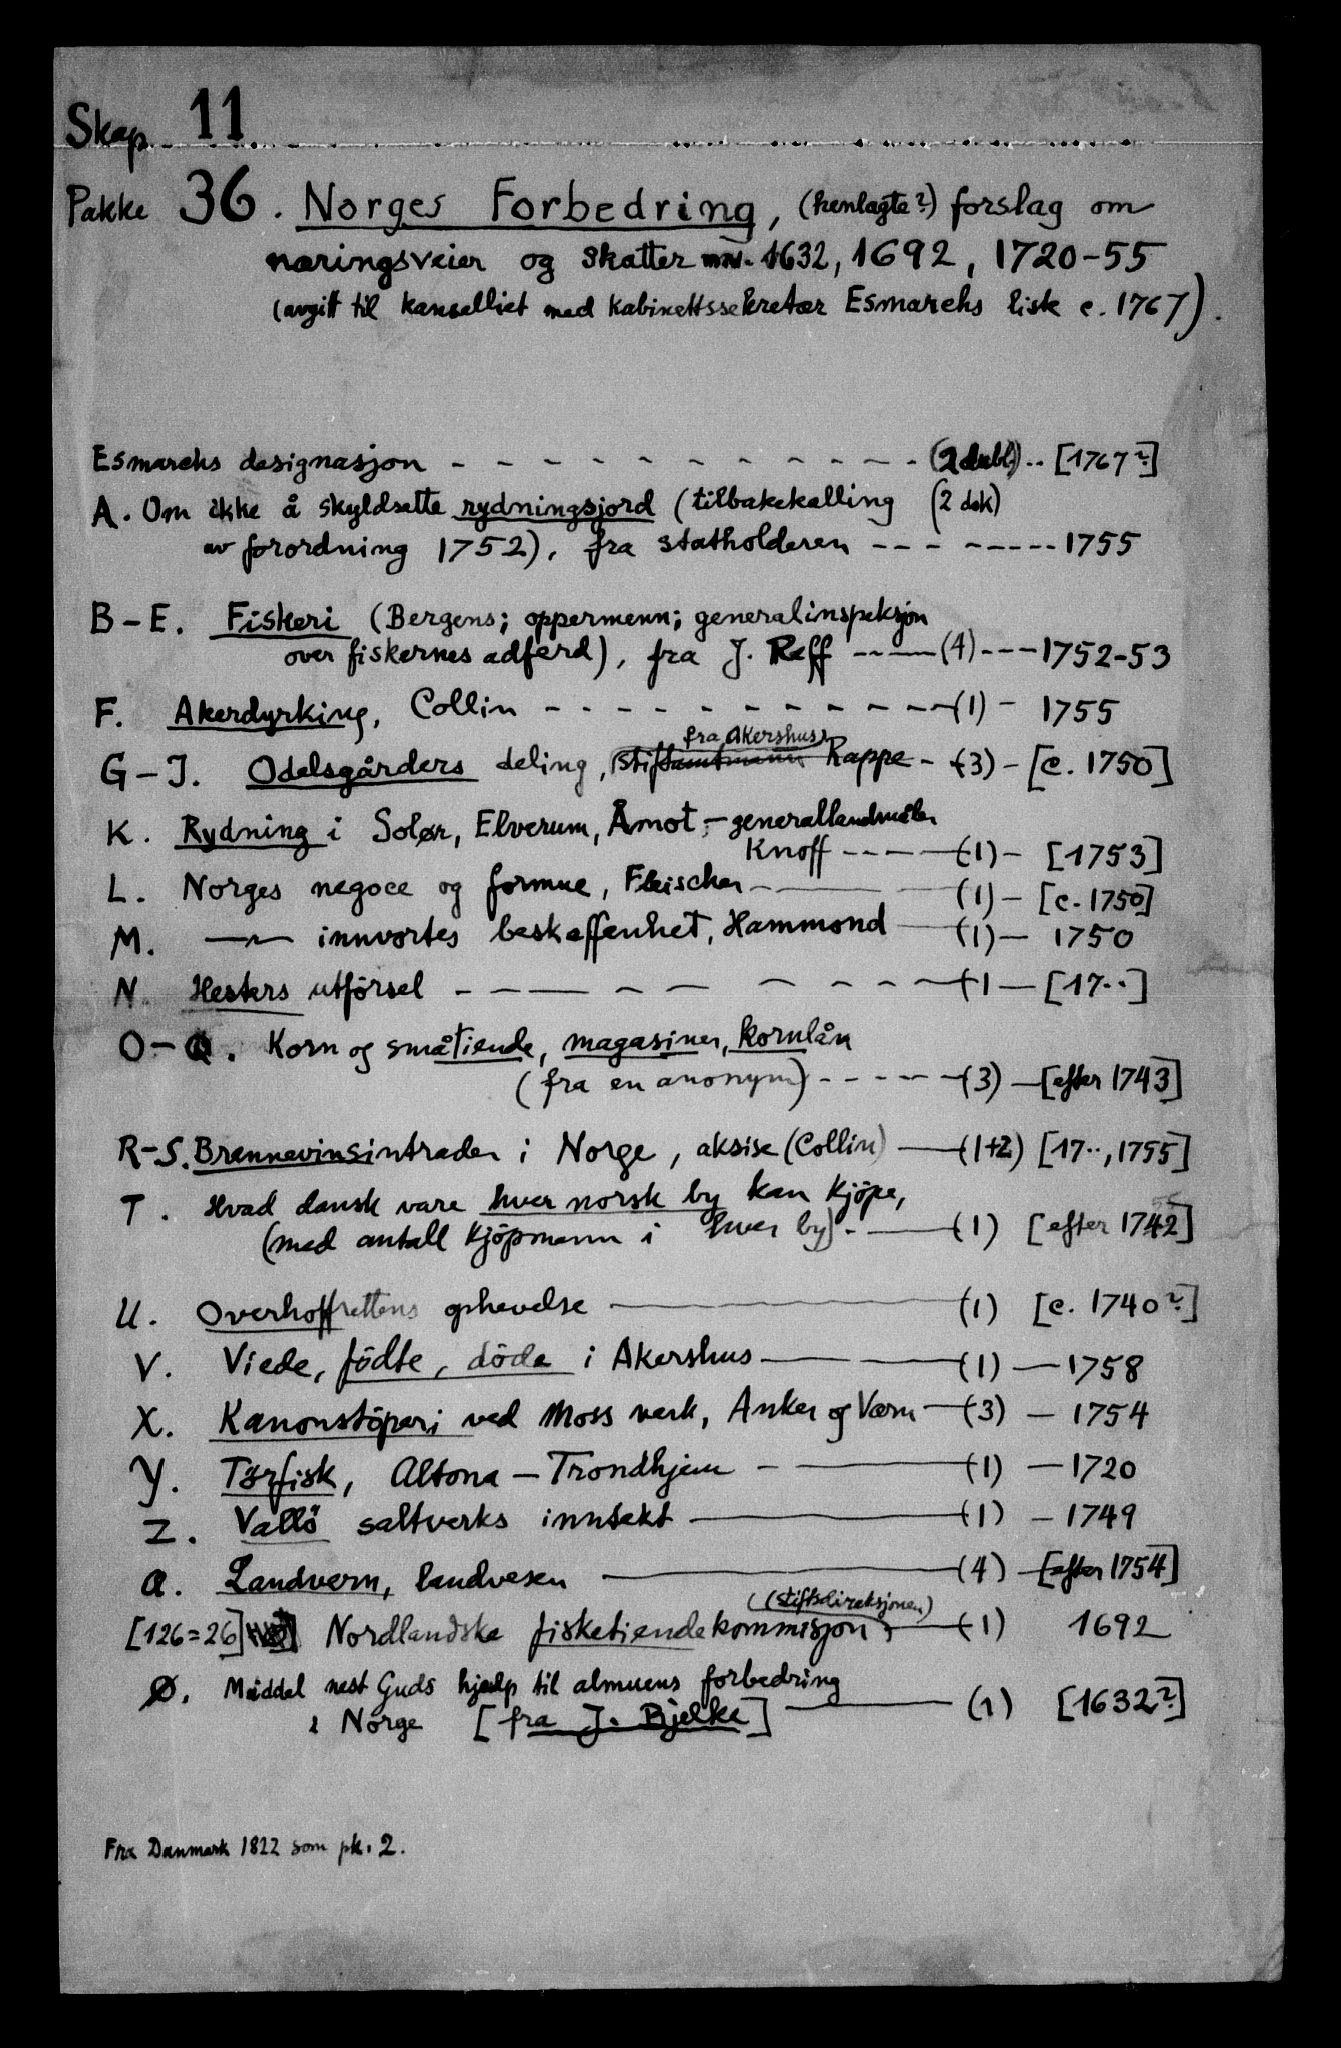 Skap 11
Pakke 36. Norges Forbedring, (henlagte?) forslag om
næringsveier og skatter 1632, 1692, 1720-55
(avgitt til kanselliet med kabinettssekretær Esmarchs liste c. 1767).
Esmarchs designasjon - - - - - - - - - - - (2 dubl.) .. [1767?]
A. Om ikke å skyldsette rydningsjord (tilbakekalling (2 dok)
av forordning 1752), fra statholderen - - - - - - - - 1755
B-E. Fiskeri (Bergens; oppermenn; generalinspeksjon
over fiskernes adferd), fra J. Reff - - - (4) - - - 1752-53
F. Akerdyrking, Collin - - - - - - - - - - - (1) - 1755
fra Akershus
G-J. Odelsgårders deling, stiftamtmann Rappe - (3) - [c. 1750]
K. Rydning i Solør, Elverum, Åmot, - generallandmåler
Knoff - - - - (1) - [1753]
L. Norges negoce og formue, Fleischer - — — (1) - [c. 1750]
M. —"— innvortes beskaffenhet, Hammond — (1) — 1750
N. Hesters utförsel - - — - — - - - - — (1 — [17..]
O-Q. Korn og småtiende, magasiner, kornlån
(fra en anonym) - - - - - (3) — [efter 1743]
R-S. Brennevinsintrader i Norge, aksise (Collin) — (1+2) [17.., 1755]
T. Hvad dansk vare hver norsk by kan kjöpe,
(med antall kjöpmenn i hver by) - — (1) [efter 1742]
U. Overhoffrettens ophevelse — (1) [c. 1740?]
V. Viede, födte, döde i Akershus — — (1) — 1758
X. Kanonstöperi ved Moss verk, Anker ogVærn — (3) — 1754
Y. Tørfisk, Altona — Trondhjem - — (1) — 1720
Z. Vallö saltverks inntekt — (1) — 1749
Æ. Landvern, landvesen — (4) — [efter 1754]
(stiftsdireksjonen)
[126=26] Nordlandske fisketiendekommisjon, — (1) 1692
Ø. Middel nest Guds hjælp til almuens forbedring
i Norge [fra J. Bjelke] — (1) [1632?]
Fra Danmark 1822 som pk. 2.